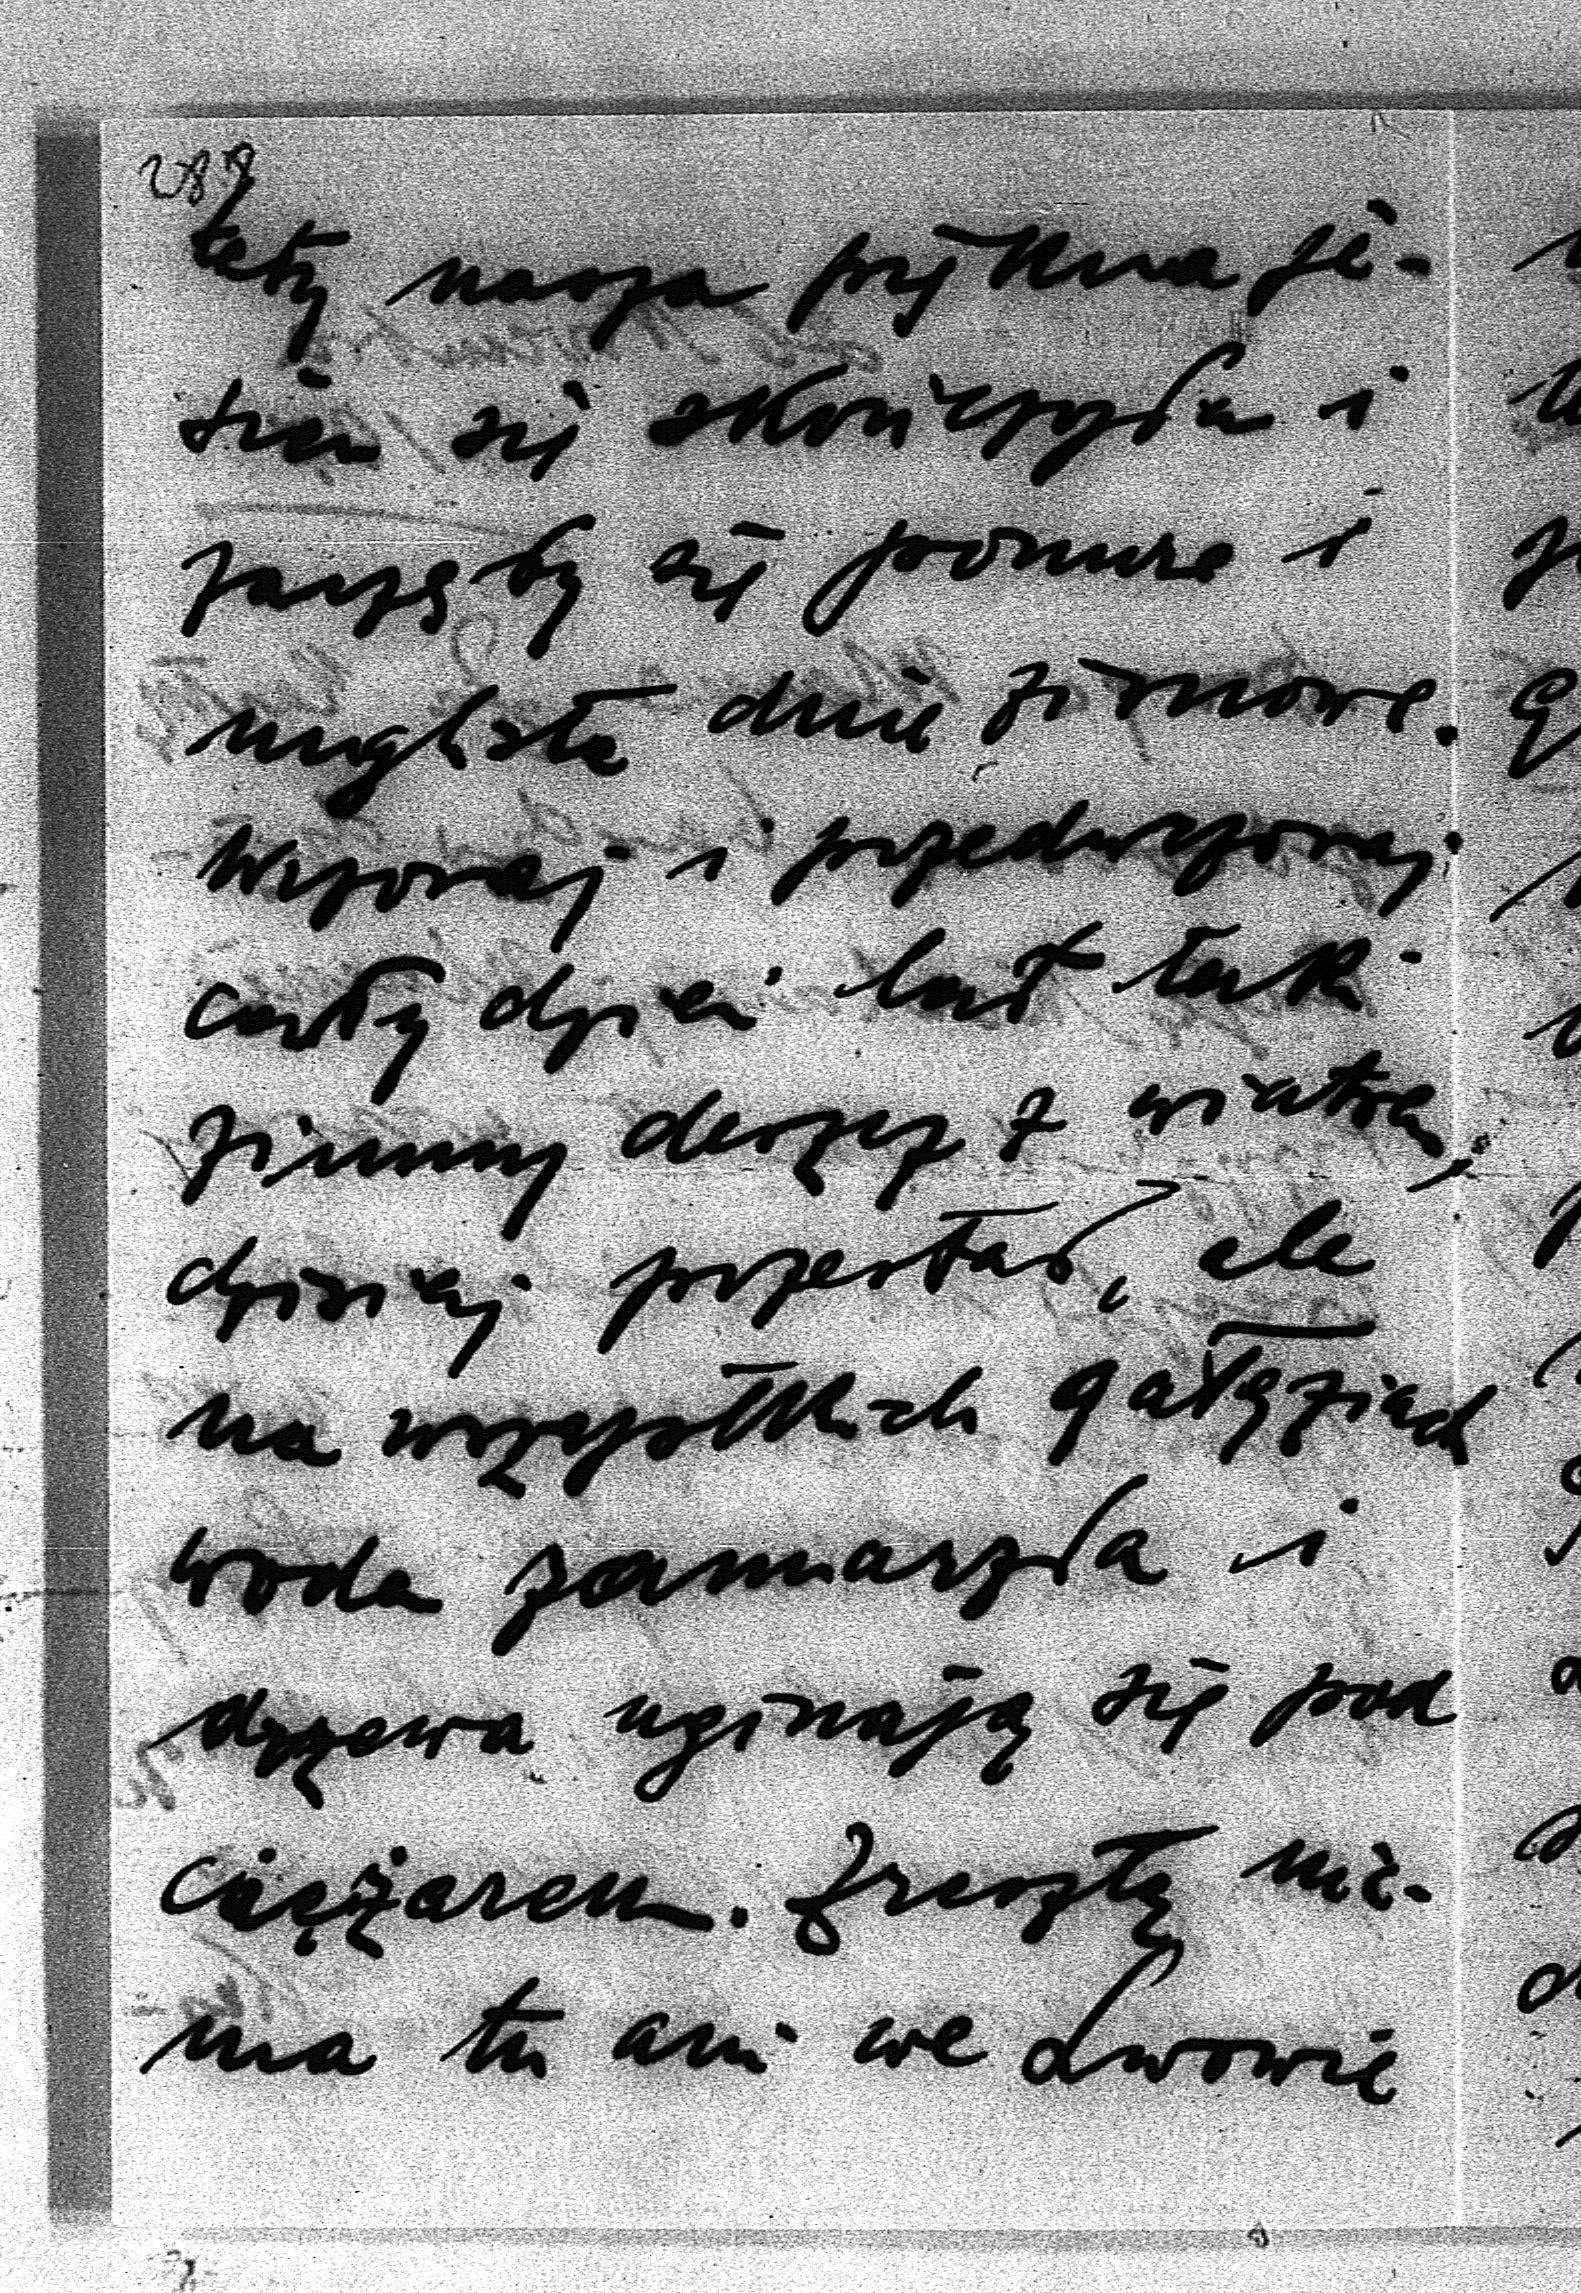 288
taty nasza piękna je-
sień się skończyła i
zaczęły się ponure i
mgliste dnie zimowe.
Wczoraj i przedwczoraj
cały dzień lał taki
zimny deszcz z wiatrem,
dzisiaj przestał, ale
na wszystkich gałęziach
woda zamarzła i
drzewa uginają się pod
ciężarem. Zresztą nie-
ma tu ani we Lwowie